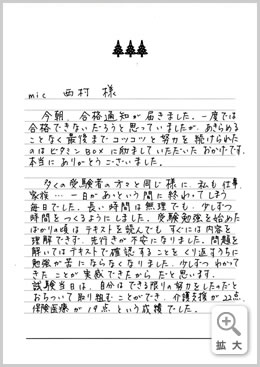 mic 西村 様
今朝、合格通知が届きました。一度では
合格できないだろうと思っていましたが、あきらめる
ことなく最後までコツコツと努力を続けられた
のはビタミンBOXに励ましていただいたおかげです。
本当にありがとうございました。
多くの受験者の方々と同じ様に、私も仕事、
家族… 一日があっという間に終わってしまう
毎日でした。長い時間は無理でも、少しずつ
時間をつくるようにしました。受験勉強を始めた
ばかりの頃はテキストを読んでも、すぐには内容を
理解できず、先行きが不安になりました。問題を
解いてはテキストで確認することをくり返すうちに
勉強が苦にならなくなりました。少しずつわかって
きたことが実感できたからだと思います。
試験当日は、自分はできる限りの努力をしたのだと
おちついて取り組むことができ、介護支援が22点、
保険医療が19点という成績でした。
拡大